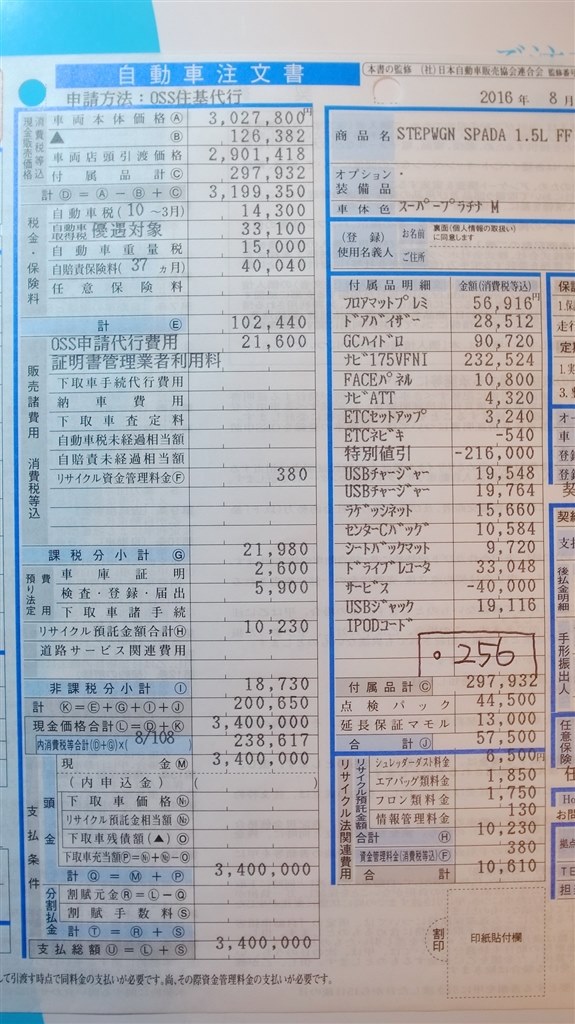 自動車注文書
(本書の監修 (社)日本自動車販売協会連合会 監修番号
申請方法：OSS住基代行
2016 年 8 月
現金販売価格
消費税等込
車両本体価格Ⓐ 3,027,800円
▲ Ⓑ 126,382
車両店頭引渡価格 2,901,418
付属品計Ⓒ 297,932
計Ⓓ=Ⓐ-Ⓑ+Ⓒ 3,199,350
税金・保険料
自動車税(10 ～3月) 14,300
自動車取得税 優遇対象 33,100
自動車重量税 15,000
自賠責保険料(37 ヵ月) 40,040
任意保険料
計 Ⓔ 102,440
販売諸費用 消費税等込
OSS申請代行費用 21,600
証明書管理業者利用料
下取車手続代行費用
納車費用
下取車査定料
自動車税未経過相当額
自賠責未経過相当額
リサイクル資金管理料金Ⓕ 380
課税分小計Ⓖ 21,980
預り法定費用
車庫証明 2,600
検査・登録・届出 5,900
下取車諸手続
リサイクル預託金額合計Ⓗ 10,230
道路サービス関連費用
非課税分小計Ⓘ 18,730
計Ⓚ=Ⓔ+Ⓖ+Ⓘ+Ⓙ 200,650
現金価格合計Ⓛ=Ⓓ+Ⓚ 3,400,000
内消費税等合計(Ⓓ+Ⓖ)×( 8/108 ) 238,617
支払条件
頭金
現金Ⓜ 3,400,000
(内申込金) ( )
下取車価格
リサイクル預託金相当額
下取車残債額(▲)Ⓞ
下取車充当額
計Ⓠ=Ⓜ+Ⓟ 3,400,000
分割払金
割賦元金Ⓡ=Ⓛ-Ⓠ
割賦手数料Ⓢ
計Ⓣ=Ⓡ+Ⓢ
支払総額Ⓤ=Ⓛ+Ⓢ 3,400,000
して引渡す時点で同料金の支払いが必要です。尚、その際資金管理料金の支払いが必要です。
商品名 STEPWGN SPADA 1.5L FF
オプション装備品
車体色 スーパープラチナ M
(登録)使用名義人
お名前 裏面(個人情報の取扱い)に同意します
ご住所
付属品明細 金額(消費税等込)
フロアマットプレミ 56,916円
ドアバイザー 28,512
GCハイドロ 90,720
ナビ175VFNI 232,524
FACEパネル 10,800
ナビATT 4,320
ETCセットアップ 3,240
ETCネビキ -540
特別値引 -216,000
USBチャージャー 19,548
USBチャージャー 19,764
ラゲッジネット 15,660
センターCバッグ 10,584
シートバックマット 9,720
ドライブレコータ 33,048
サービス -40,000
USBジャック 19,116
IPODコード
256
付属品計Ⓒ 297,932
点検パック 44,500
延長保証マモル 13,000
合計Ⓙ 57,500
リサイクル法関連費用
リサイクル預託金額
シュレッダーダスト料金 6,500円
エアバッグ類料金 1,850
フロン類料金 1,750
情報管理料金 130
合計Ⓗ 10,230
資金管理料金(消費税等込)Ⓕ 380
合計 10,610
割印
印紙貼付欄